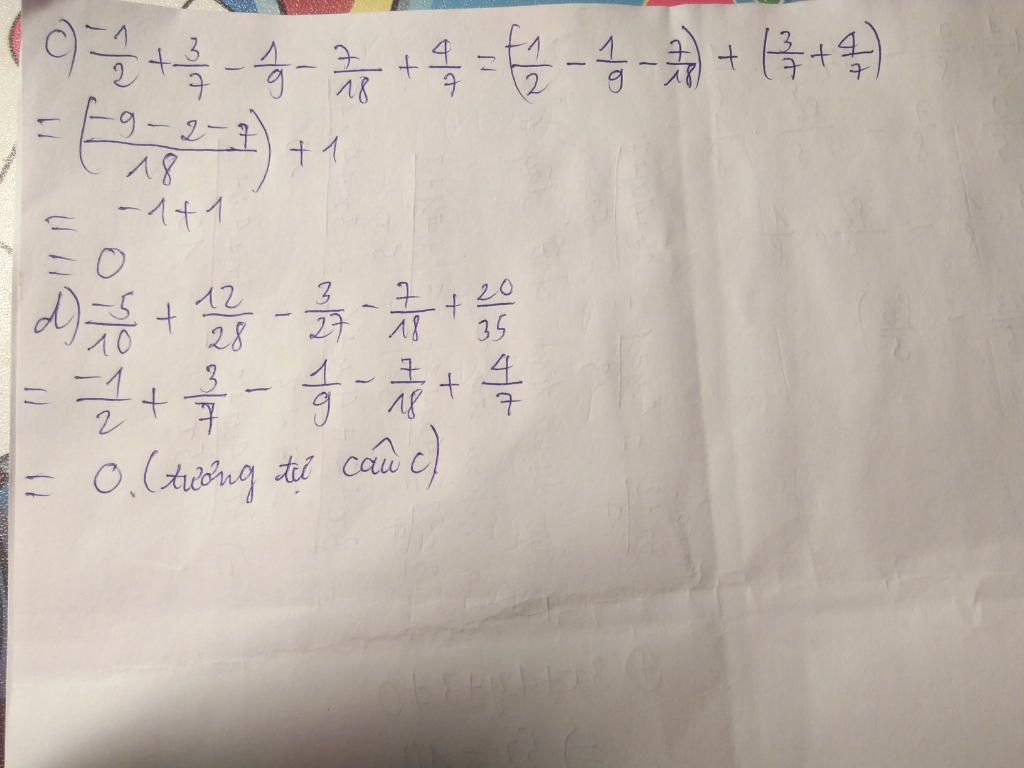 c) -1/2 + 3/7 - 1/9 - 7/18 + 4/7 = (-1/2 - 1/9 - 7/18) + (3/7 + 4/7)
= ((-9 - 2 - 7)/18) + 1
= -1 + 1
= 0
d) -5/10 + 12/28 - 3/27 - 7/18 + 20/35
= -1/2 + 3/7 - 1/9 - 7/18 + 4/7
= 0. (tương tự câu c)